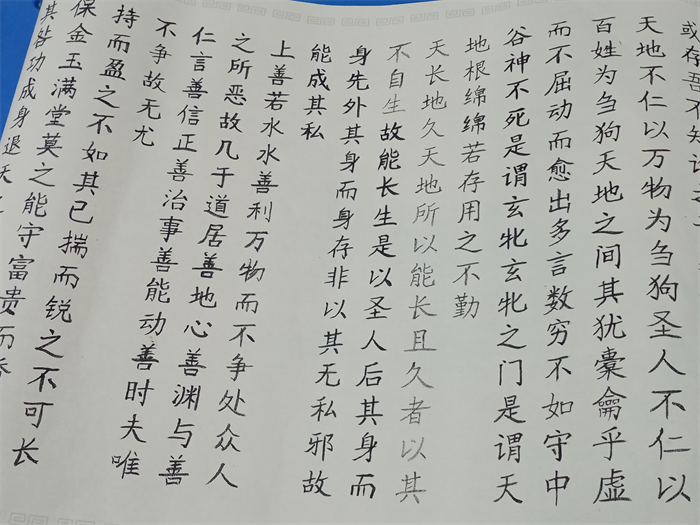 或存吾不知谁之
天地不仁以万物为刍狗圣人不仁以
百姓为刍狗天地之间其犹橐龠乎虚
而不屈动而愈出多言数穷不如守中
谷神不死是谓玄牝玄牝之门是谓天
地根绵绵若存用之不勤
天长地久天地所以能长且久者以其
不自生故能长生是以圣人后其身而
身先外其身而身存非以其无私邪故
能成其私
上善若水水善利万物而不争处众人
之所恶故几于道居善地心善渊与善
仁言善信正善治事善能动善时夫唯
不争故无尤
持而盈之不如其已揣而锐之不可长
保金玉满堂莫之能守富贵而
其咎功成身退天之